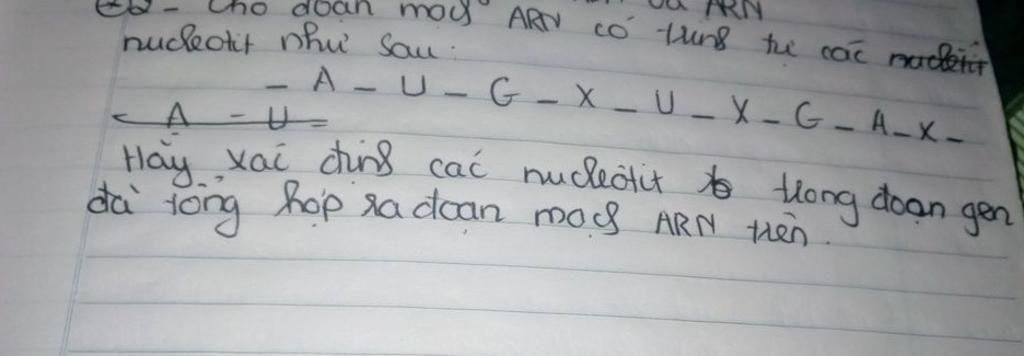 - Cho đoạn mạch ARN có trình tự các nucletit
nucleotit như sau:
- A - U - G - X - U - X - G - A - X -
- A - U -
Hãy xác định các nucleotit trong đoạn gen
đã tổng hợp ra đoạn mạch ARN trên.